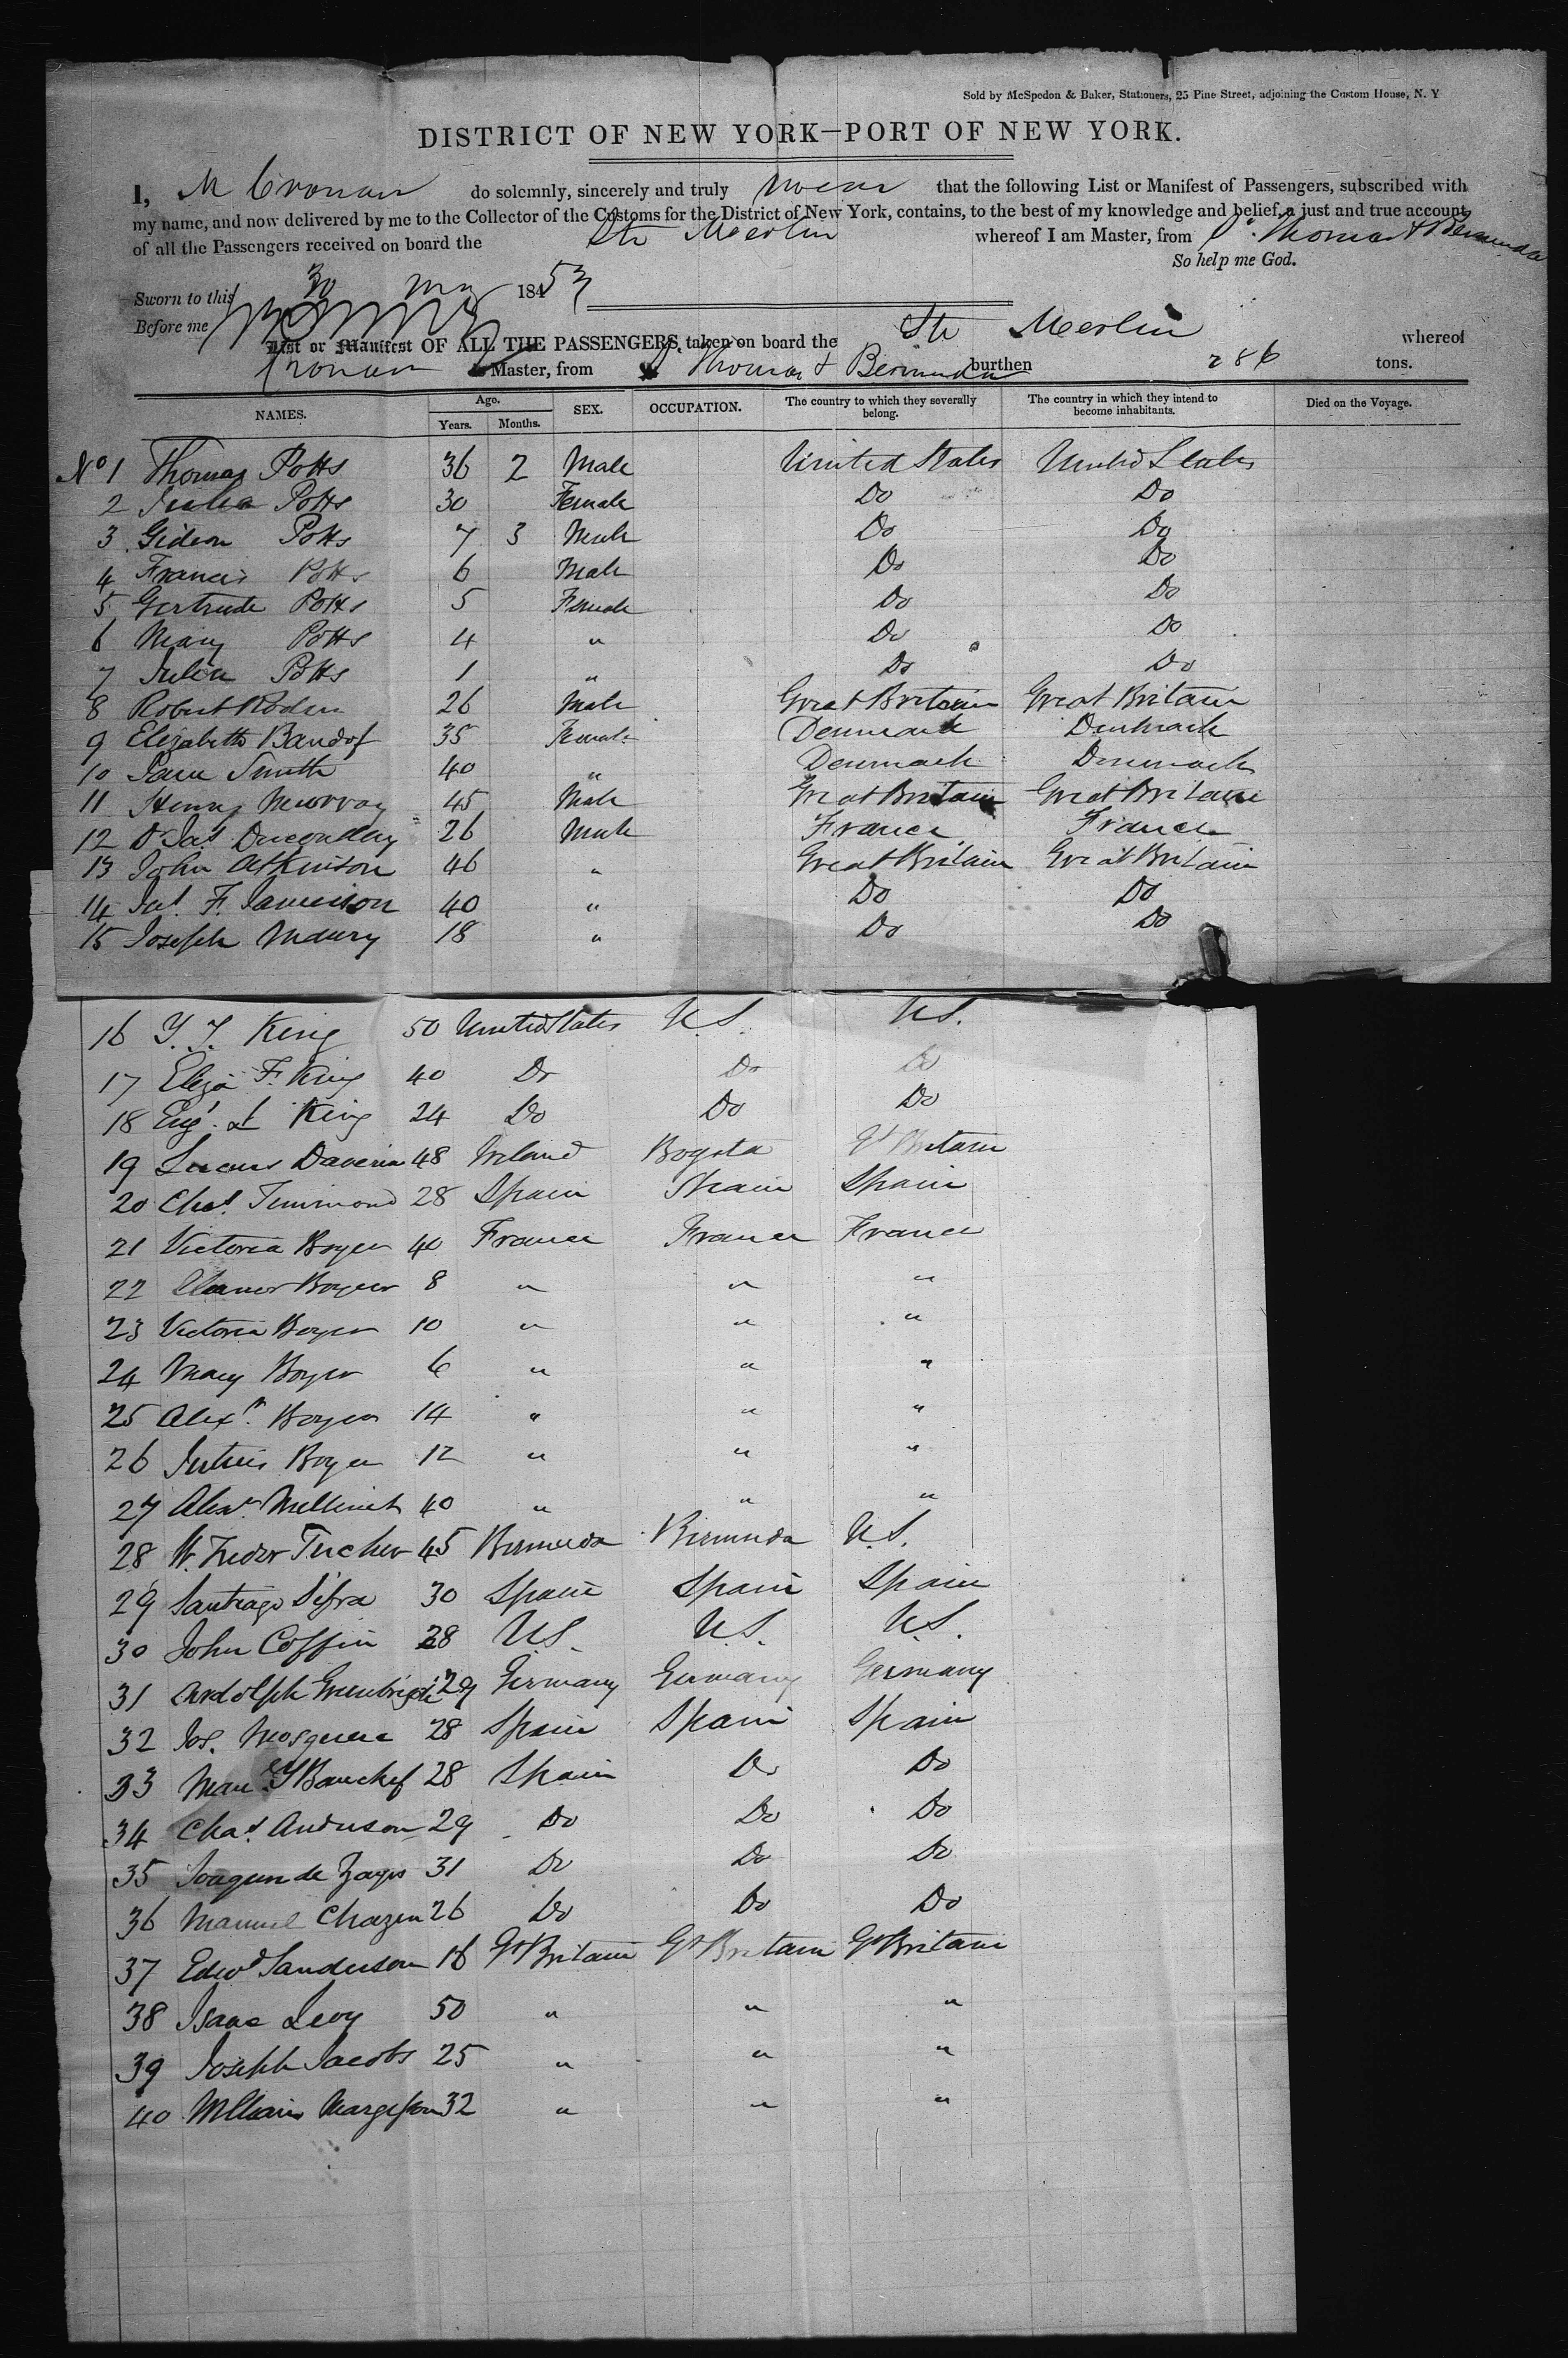 Sold by McSpedon & Baker, Stationers, 25 Pine Street, adjoining the Custom House, N. Y
DISTRICT OF NEW YORK—PORT OF NEW YORK.
I, M Cronan do solemnly, sincerely and truly swear that the following List or Manifest of Passengers, subscribed with
my name, and now delivered by me to the Collector of the Customs for the District of New York, contains, to the best of my knowledge and belief, a just and true account
of all the Passengers received on board the Str Merlin whereof I am Master, from St. Thomas & Bermuda
So help me God.
Sworn to this 30 May 1853
Before me
List or Manifest OF ALL THE PASSENGERS taken on board the Str Merlin whereof
Cronan is Master, from St. Thomas & Bermuda burthen 286 tons.
NAMES. Age. Years. Months. SEX. OCCUPATION. The country to which they severally belong. The country in which they intend to become inhabitants. Died on the Voyage.
No 1 Thomas Potts 36 2 Male United States United States
2 Julia Potts 30 Female Do Do
3 Gideon Potts 7 3 Male Do Do
4 Francis Potts 6 Male Do Do
5 Gertrude Potts 5 Female Do Do
6 Mary Potts 4 " Do Do
7 Julia Potts 1 " Do Do
8 Robert 26 Male Great Britain Great Britain
9 Elizabeth 35 Female Denmark Denmark
10 Smith 40 " Denmark Denmark
11 Henry Murray 45 Male Great Britain Great Britain
12 Dr Jas 26 Male France France
13 John Atkinson 46 " Great Britain Great Britain
14 Jas. F. Jameison 40 " Do Do
15 Joseph 18 " Do Do
16 Y. T. King 50 United States U.S. U.S.
17 Eliza F. King 40 Do Do Do
18 King 24 Do Do Do
19 48 Ireland Bogota Gt Britain
20 Chas. Timmond 28 Spain Spain Spain
21 Victoria Boyer 40 France France France
22 Eleanor Boyer 8 " " "
23 Victoria Boyer 10 " " "
24 Mary Boyer 6 " " "
25 Alexr. Boyer 14 " " "
26 Julius Boyer 12 " " "
27 Alexr. 40 " " "
28 W. Tudor Tucker 45 Bermuda Bermuda U.S.
29 Santiago 30 Spain Spain Spain
30 John Coffin 28 U.S. U.S. U.S.
31 29 Germany Germany Germany
32 Jos. Mosquera 28 Spain Spain Spain
33 28 Spain Do Do
34 Chas. Anderson 29 Do Do Do
35 Joaquin de Zayas 31 Do Do Do
36 Manuel 26 Do Do Do
37 Edwd Sanderson 16 Gt Britain Gt Britain Gt Britain
38 Isaac Levy 50 " " "
39 Joseph Jacobs 25 " " "
40 William 32 " " "